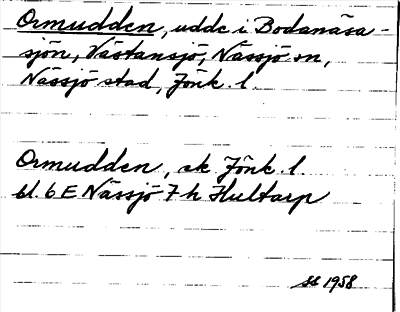 Ormudden, udde i Bodanäsa-
sjön, Västansjö, Nässjö sn,
Nässjö stad, Jönk. l.
Ormudden, ek Jönk. l.
bl. 6 E Nässjö 7 h Hultarp
1958